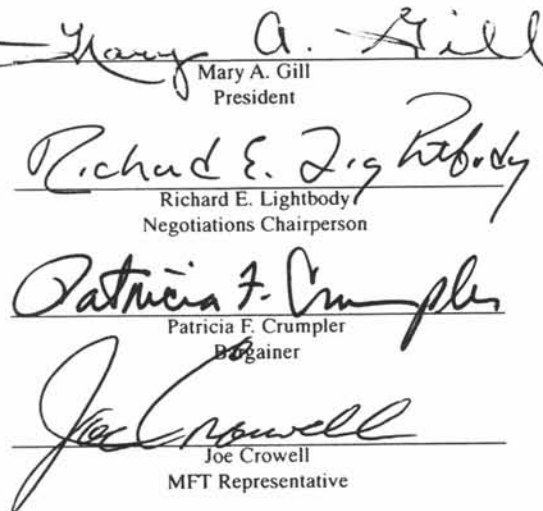 Mary A. Gill
Mary A. Gill
President
Richard E. Lightbody
Richard E. Lightbody
Negotiations Chairperson
Patricia F. Crumpler
Patricia F. Crumpler
Bargainer
Joe Crowell
Joe Crowell
MFT Representative